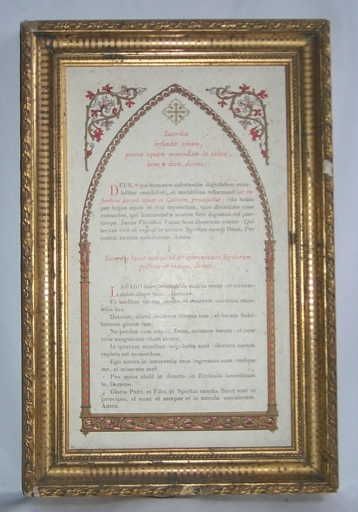 Sacerdos
infundit vinum,
DEUS, qui humanæ substantiæ dignitatem mira-
biliter condidisti, et mirabilius reformasti
da nobis
per hujus aquæ et vini mysterium, ejus divinitatis esse
consortes, qui humanitatis nostræ fieri dignatus est par-
ticeps Jesus Christus Filius tuus Dominus noster: Qui
tecum vivit et regnat in unitate Spiritus sancti Deus. Per
omnia sæcula sæculorum. Amen.
Sacerdos lavat manus,
LAVABO inter innocentes manus meas: et circum-
dabo altare tuum, Domine.
Domine, dilexi decorem domus tuæ: et locum habi-
tationis gloriæ tuæ.
Ne perdas cum impiis, Deus, animam meam: et cum
viris sanguinum vitam meam.
In quorum manibus iniquitates sunt: dextera eorum
repleta est muneribus.
Ego autem in innocentia mea ingressus sum: redime
me, et miserere mei.
Pes meus stetit in directo: in Ecclesiis benedicam
te, Domine.
Gloria Patri, et Filio, et Spiritui sancto. Sicut erat in
principio, et nunc et semper et in sæcula sæculorum.
Amen.